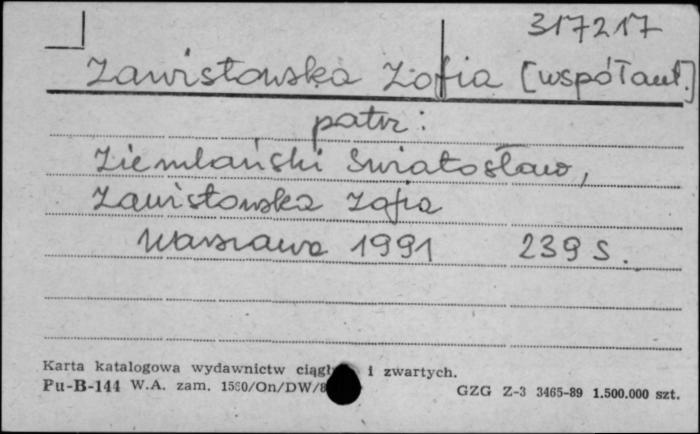 317217
Zawistowska Zofia [współaut.]
patrz:
Ziemlański Światosław,
Zawistowska Zofia
Warszawa 1991 239 s.
Karta katalogowa wydawnictw i zwartych.
Pu-B-144 W.A. zam. 1560/On/DW/8
GZG Z-3 3465-89 1.500.000 szt.